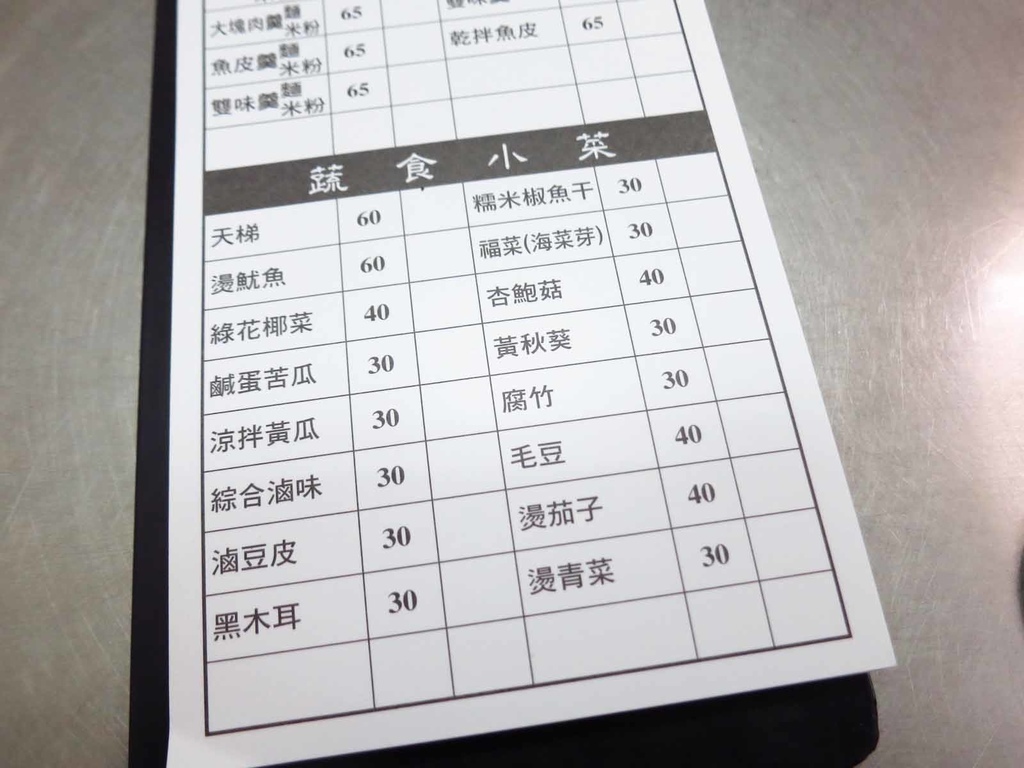 大塊肉羹麵米粉 65
魚皮羹麵米粉 65 乾拌魚皮 65
雙味羹麵米粉 65
蔬食小菜
天梯 60 糯米椒魚干 30
燙魷魚 60 福菜(海菜芽) 30
綠花椰菜 40 杏鮑菇 40
鹹蛋苦瓜 30 黃秋葵 30
涼拌黃瓜 30 腐竹 30
綜合滷味 30 毛豆 40
滷豆皮 30 燙茄子 40
黑木耳 30 燙青菜 30